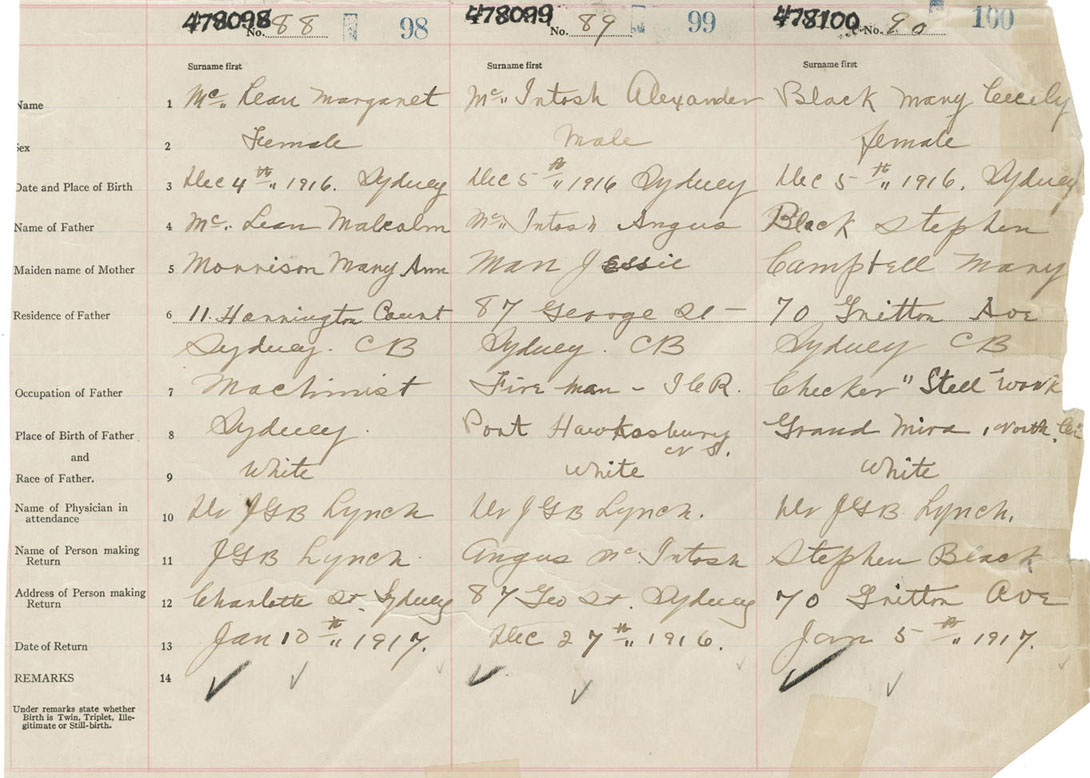 478098 No. 88 98 478099 No. 89 99 478100 No. 90 100
Surname first Surname first Surname first
Name 1 Mc Lean Margaret Mc Intosh Alexander Black Mary Cecily
Sex 2 Female Male female
Date and Place of Birth 3 Dec 4th 1916. Sydney Dec 5th 1916 Sydney Dec 5th 1916. Sydney
Name of Father 4 Mc. Lean Malcolm Mc Intosh Angus Black Stephen
Maiden name of Mother 5 Morrison Mary Ann Man Jessie Campbell Mary
Residence of Father 6 11. Hannington Count 87 George St - 70 Ave
Sydney. CB Sydney. CB Sydney CB
Occupation of Father 7 Machinist Fireman - ICR. Checker "Steel work
Place of Birth of Father 8 Sydney Port Hawksbury Grand Mira, North
N S.
and
Race of Father. 9 White White White
Name of Physician in
attendance 10 Dr JGB Lynch Dr JGB Lynch. Dr JGB Lynch.
Name of Person making
Return 11 JGB Lynch Angus Mc Intosh Stephen Black
Address of Person making
Return 12 Charlotte St. Sydney 87 Geo St. Sydney 70 Ave
Date of Return 13 Jan 10th 1917. Dec 27th 1916. Jan 5th 1917.
REMARKS 14
Under remarks state whether
Birth is Twin, Triplet, Ille-
gitimate or Still-birth.